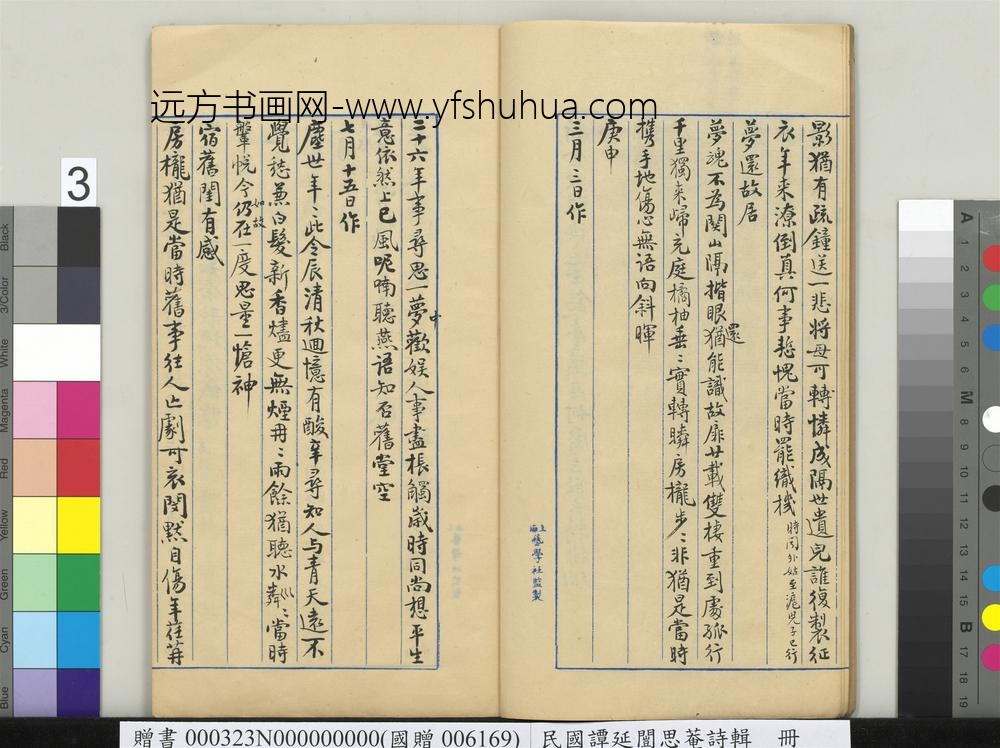 远方书画网-www.yfshuhua.com
影猶有疏鐘送一悲將母可轉憐成隔世遺兒誰復製征
衣年来潦倒真何事愁愧當時罷織機 時聞外姑至滬兒子已行
夢還故居
夢魂不為関山隔揩眼猶能識故扉廿載雙棲重到處孤行
還
千里獨来歸充庭橘柚垂〻實轉瞬房櫳步〻非猶是當時
携手地傷心無語向斜暉
庚申
三月三日作
二十六年事尋思一夢中歡娱人事盡棖觸歲時同尚想平生
意依然上巳風呢喃聽燕語知否舊堂空
七月十五日作
塵世年〻此令辰清秋迴憶有酸辛尋知人与青天遠不
覺愁兼白髮新香燼更無煙冉〻雨餘猶聽水粼〻當時
鞶帨今仍在一度思量一愴神
如故
宿舊閨有感
房櫳猶是當時舊事往人亡劇可衣閔默自傷年荏苒
上海藝學社監製
3
Black
3/Color
White
Magenta
Red
Yellow
Green
Cyan
Blue
A 1 2 3 4 5 6 M 8 9 10 11 12 13 14 15 B 17 18 19
贈書 000323N000000000(國贈 006169)
民國譚延闓思菴詩輯 冊